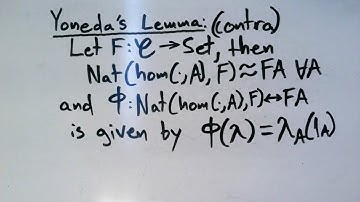 Yoneda's Lemma: (contra)
Let F: 𝒞 → Set, then
Nat(hom(·,A), F) ≈ FA ∀A
and Φ: Nat(hom(·,A),F) ↔ FA
is given by Φ(λ) = λ_A(1_A)